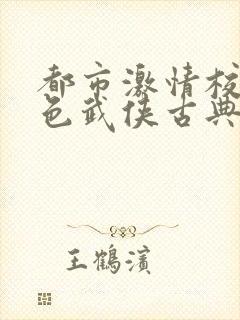 都市激情校
色武侠古典
王鹤滨